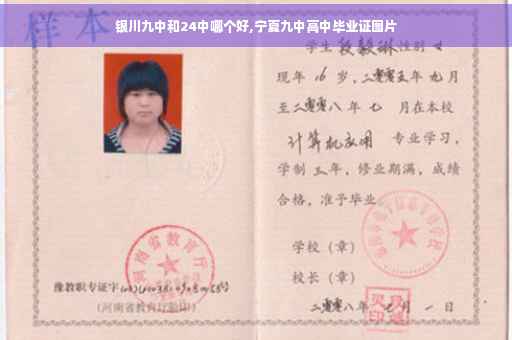 银川九中和24中哪个好,宁夏九中高中毕业证图片
样本
学生 段毅琳 性别 女
现年 16 岁，二零零五年 九月
至二零零八年 七 月在本校
计算机应用 专业学习，
学制 三年，修业期满，成绩
合格，准予毕业
学校（章）
校长（章）
二零零八年 月 一 日
河南省教育厅
豫教职专证字
（河南省教育厅验印）